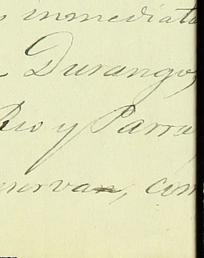 inmediato
Durango,
Rio y Parra
servan, com